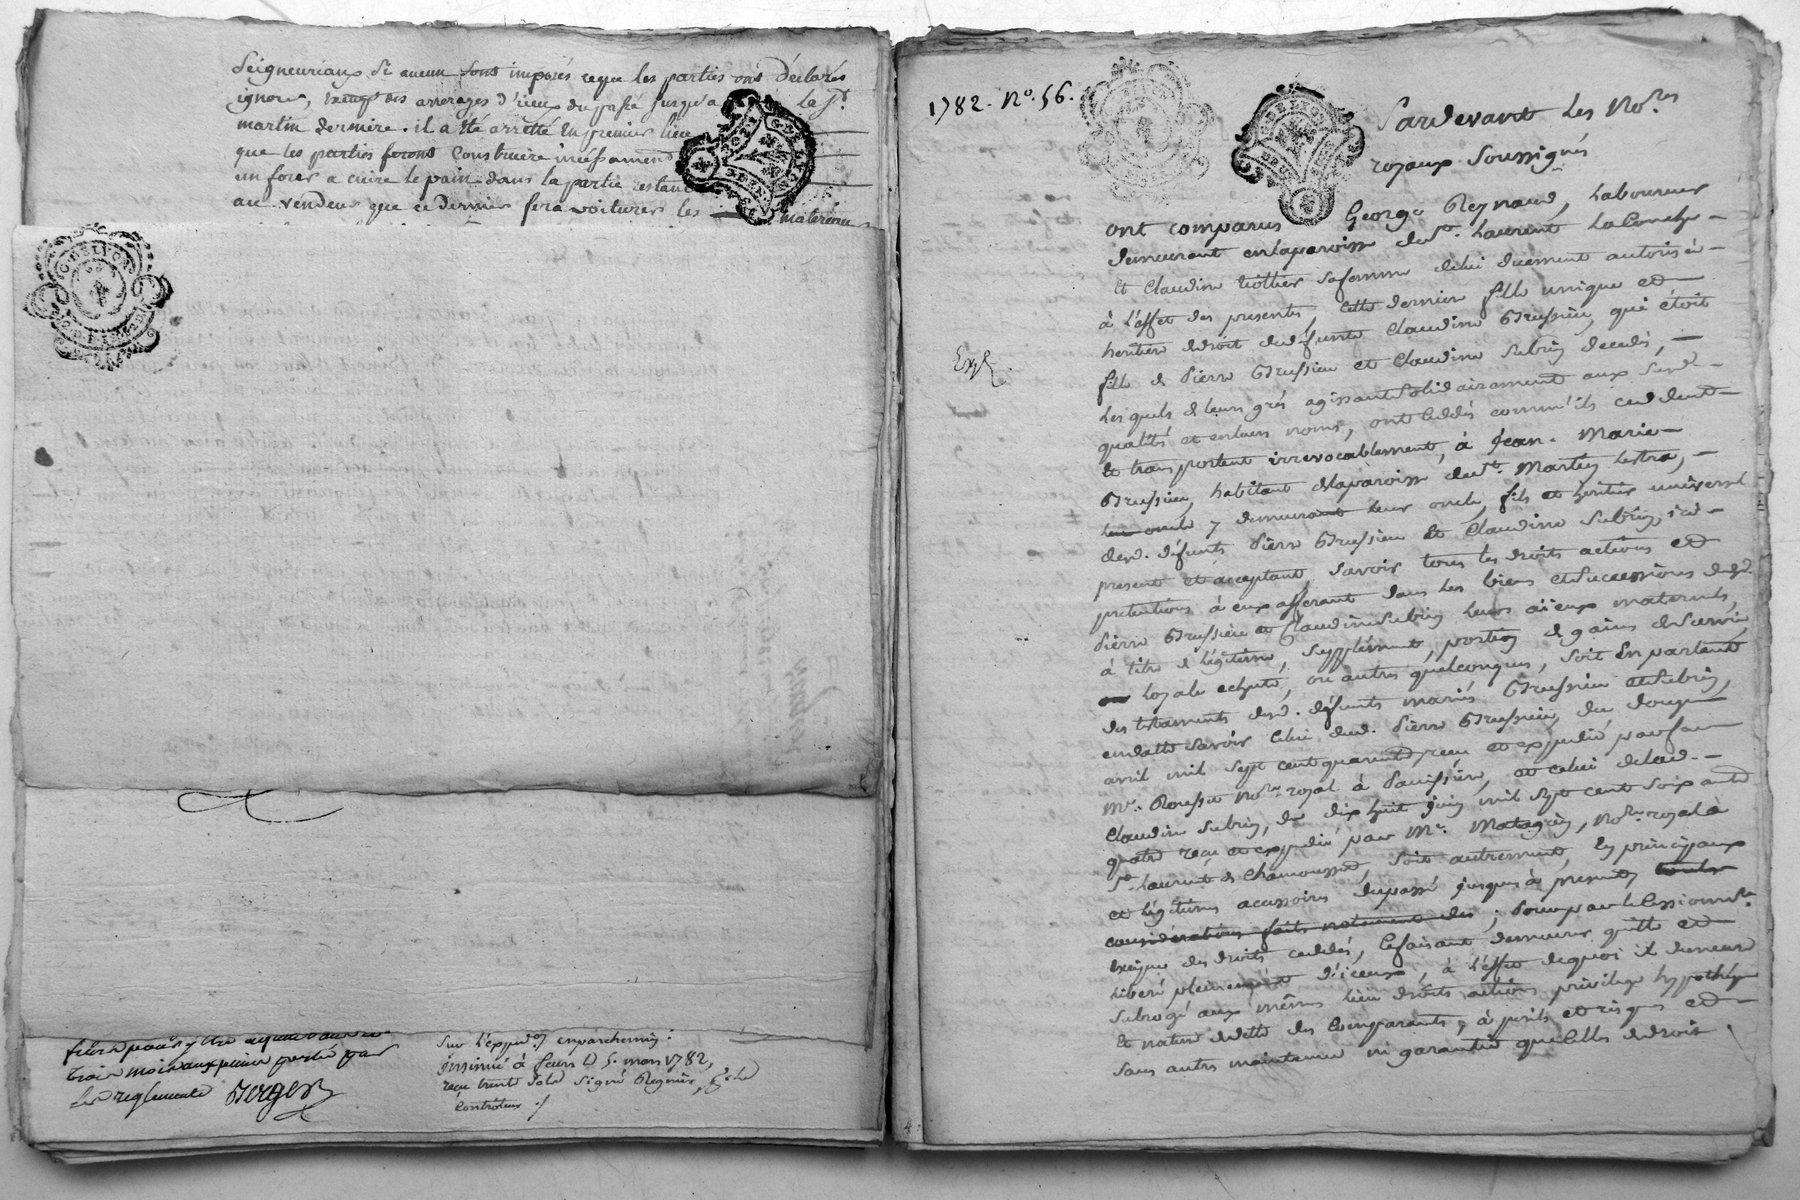 Seigneuriaux si aucun sont imposés reque les parties ont déclarés
ignorer, exempt des arrerages d'iceux du passé jusqu'a la St.
martin derniere. il a été arretté en premier lieu
que les parties feront construire incéssament
un four a cuire le pain dans la partie restant
au vendeur que ce dernier fera voiturer les materiaux
trois mois aux peines porté par
les reglements Verger
Sur l'expedon. en parchemin:
insinué à feurs le 5. mars 1782,
reçu trente sols signé Regnier,
Controleur ./.
1782. No. 56.
Pardevant les No.res
royaux soussignés
ont comparus George Reynaud, laboureur
demeurant en la paroisse de St. Laurent
et Claudine sa femme de lui duement autorisée
à l'effet des presentes, cette derniere fille unique et
heritiere de droit de défunte Claudine Brussieu, qui étoit
fille de Pierre Brussieu et Claudine Subrin decedés,
Exp.
lesquels de leurs grés agissant solidairement aux susd.
qualités et en leurs noms, ont ceddés comm'ils ceddent
et transportent irrevocablement, à Jean Marie
Brussieu, habitant de la paroisse de St. Martin Lestra,
leur oncle y demeurant leur oncle, fils et heritier universel
desd. défunts Pierre Brussieu et Claudine Subrin, ici
present et acceptant, savoir tous les droits actions et
pretentions à eux afferant dans les biens et successions desd.
Pierre Brussieu et Claudine Subrin leurs aïeux maternels,
à titre de légitime, supplément, portion de gains de survie,
loyale echute, ou autres quelconques, soit en partant
des testaments desd. défunts mariés Brussieu et Subrin,
en datte savoir celui dud. Pierre Brussieu du douze
avril mil sept cent quarante reçu et expedié par feu
Me. Rousset No.re royal à Panissière, et celui de lad.
Claudine Subrin, du dix huit juin mil sept cent soixante
quatre reçu et expedié par Me. Matagrin, No.re royal à
St. Laurent de Chamousset, soit autrement, en principaux
et légitimes accessoires du passé jusques à present
considerations faits notamment des ; Pour par le Cessionn.re
exiger des droits ceddés, le faisant demeurer quitte et
liberé pleinement d'iceux, à l'effet de quoi il demeure
subrogé aux mêmes lieu droits actions privilege hypothéque
et nature de dette des Comparants, à perils et risques et
sans autre maintenue ni garantie que celles de droit